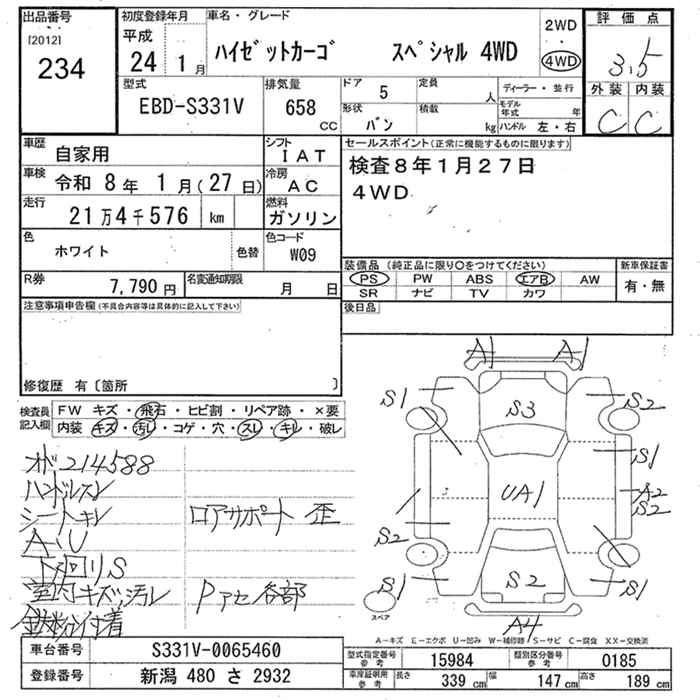 出品番号 初度登録年月 車名・グレード 2WD 評価点
[2012] 平成
234 24 1月 ハイゼットカーゴ スペシャル 4WD ・ 4WD 3.5
型式 排気量 ドア 5 定員 人 ディーラー・並行 外装 内装
EBD-S331V 658 CC 形状 バン 積載 kg モデル年式 年 C C
ハンドル 左・右
車歴 自家用 シフト IAT セールスポイント(正常に機能するものに限ります)
車検 令和 8年 1月(27日) 冷房 AC 検査8年1月27日
走行 21万4千576 km 燃料 ガソリン 4WD
色 ホワイト 色替 色コード W09
装備品 (純正品に限り○をつけてください) 新車保証書
R券 7,790円 名変通知期限 月 日 PS PW ABS エアB AW 有・無
SR ナビ TV カワ
注意事項申告欄(不具合内容等は具体的に記入して下さい) 後日品
修復歴 有〔箇所 〕
検査員記入欄 FW キズ・飛石・ヒビ割・リペア跡・×要
内装 キズ・汚レ・コゲ・穴・スレ・キレ・破レ
A1 A1
S1 S3 S2
S1
UA1 A2
S2
S2
S1 S2 S1
スペア A4
オド214588
ハンドルスレ
シートキレ ロアサポート 歪
A・U
下回りS
室内キズ汚レ Pアセ各部
鉄粉付着
A-キズ E-エクボ U-凹み W-補修跡 S-サビ C-腐食 XX-交換済
車台番号 S331V-0065460 型式指定番号 参考 15984 類別区分番号 参考 0185
登録番号 新潟 480 さ 2932 車庫証明用 参考 長さ 339 cm 幅 147 cm 高さ 189 cm